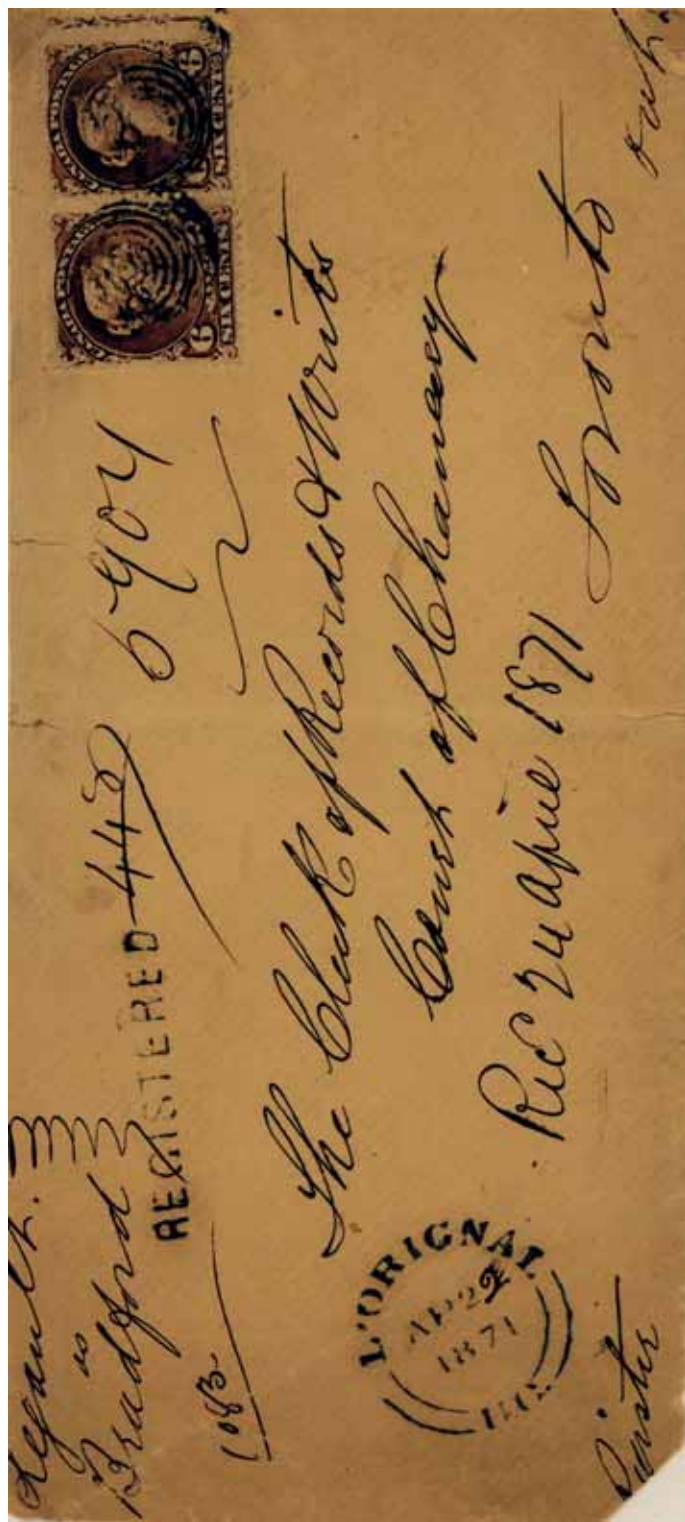 Legault.
vs
Bradford
REGISTERED 448
6904
1083
The Clerk of Records & Writs
Court of Chancery
Rec 24 April 1871
Toronto
L'ORIGNAL
AP 22
1871
CANADA POSTAGE
6 SIX CENTS 6
CANADA POSTAGE
6 SIX CENTS 6